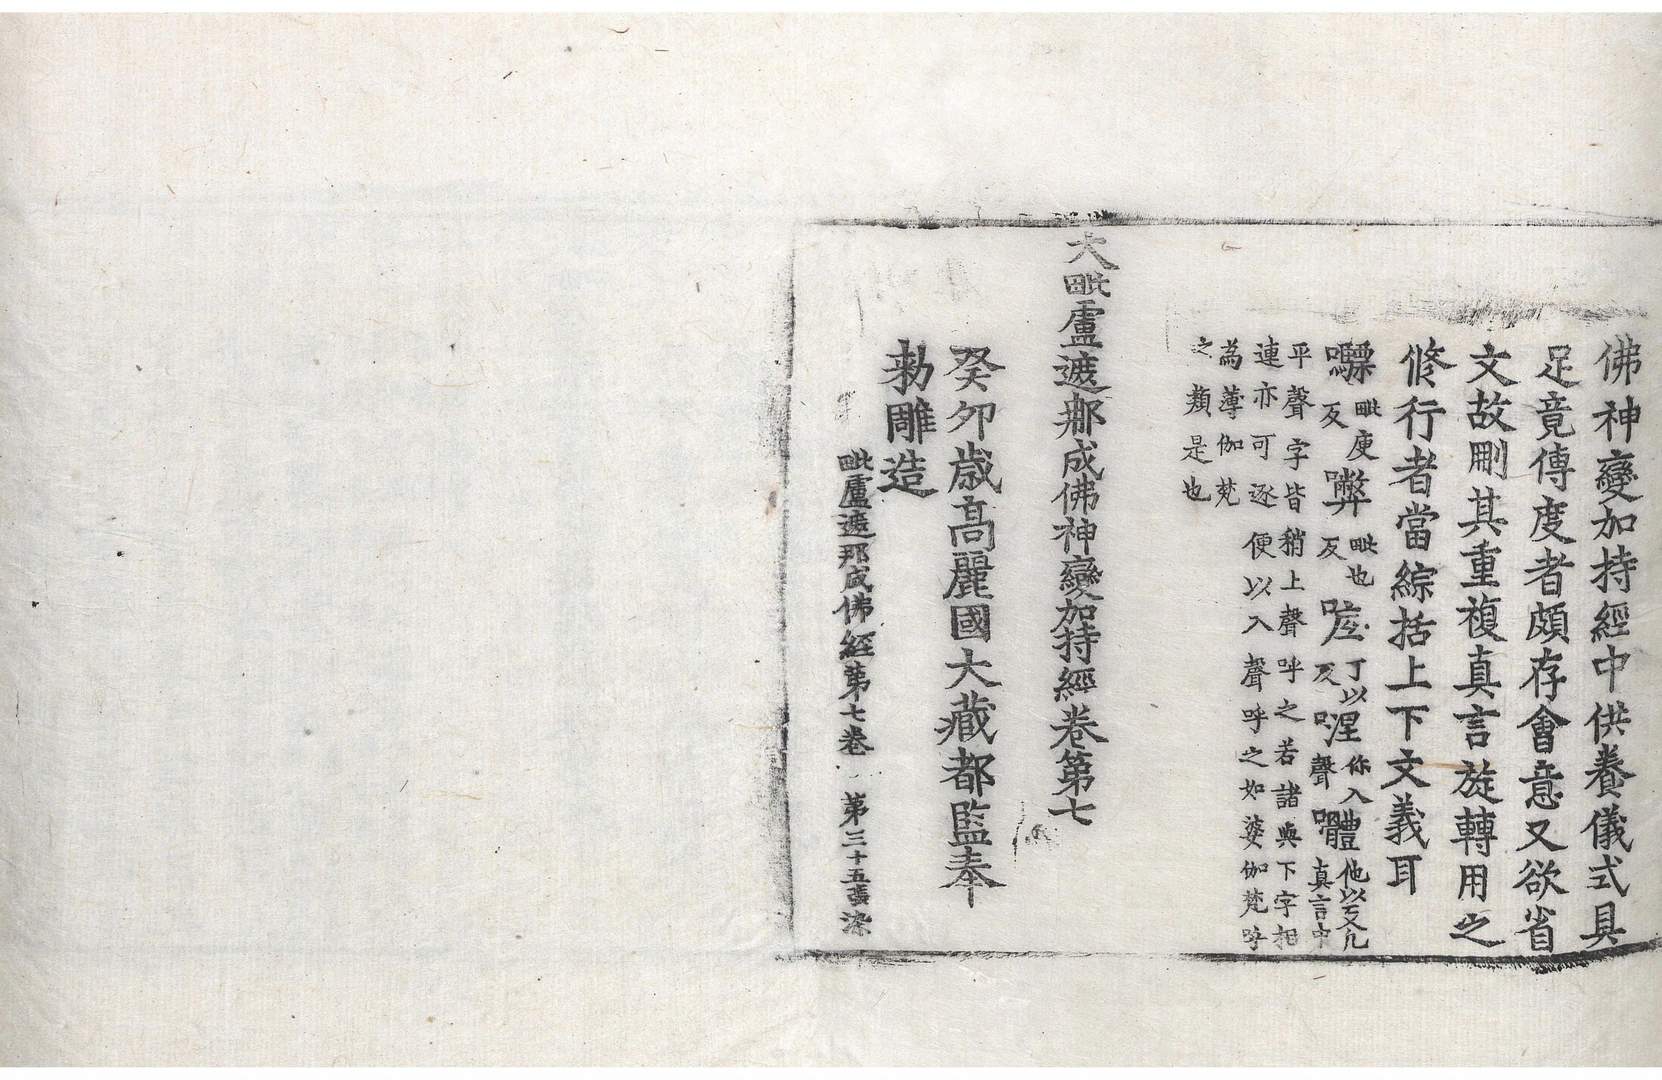 佛神變加持經中供養儀式具
足竟傳度者頗存會意又欲省
文故刪其重複真言旋轉用之
修行者當綜括上下文義耳
毗庾反毗也反丁以反你入聲他以反凡真言中
平聲字皆稍上聲呼之若諸與下字相
連亦可逐便以入聲呼之如婆伽梵呼
為薄伽梵
之類是也
大毗盧遮那成佛神變加持經卷第七
癸卯歲高麗國大藏都監奉
勑雕造
毗盧遮那成佛經第七卷 第三十五張 染